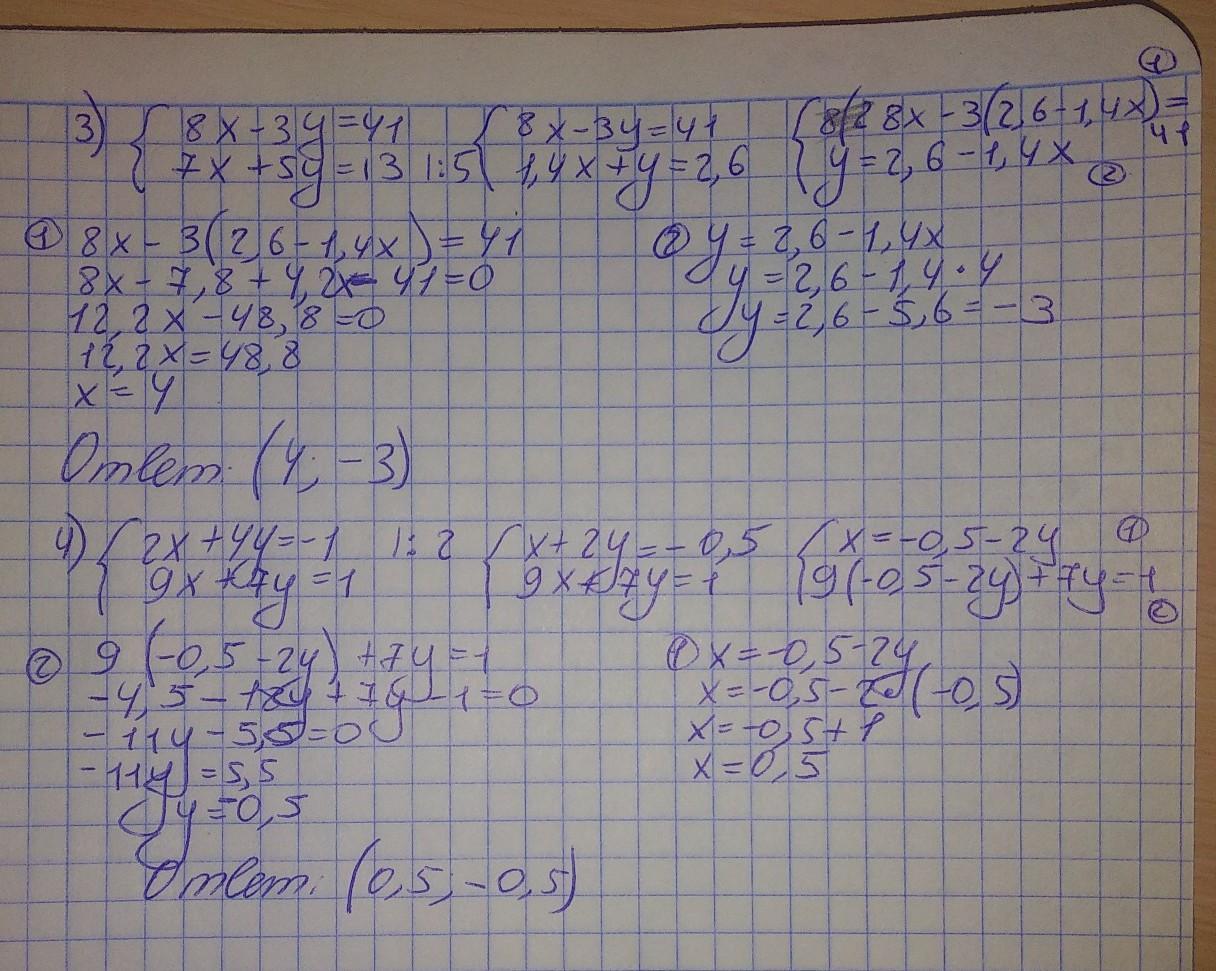 3) { 8x-3y=41 { 8x-3y=41 { 8x-3(2,6-1,4x)=41 ①
7x+5y=13 |:5 1,4x+y=2,6 y=2,6-1,4x ②
① 8x-3(2,6-1,4x)=41
8x-7,8+4,2x-41=0
12,2x-48,8=0
12,2x=48,8
x=4
② y=2,6-1,4x
y=2,6-1,4·4
y=2,6-5,6=-3
Ответ: (4; -3)
4) { 2x+4y=-1 |:2 { x+2y=-0,5 { x=-0,5-2y ①
9x+7y=1 9x+7y=1 9(-0,5-2y)+7y=1 ②
② 9(-0,5-2y)+7y=1
-4,5-18y+7y-1=0
-11y-5,5=0
-11y=5,5
y=-0,5
① x=-0,5-2y
x=-0,5-2(-0,5)
x=-0,5+1
x=0,5
Ответ: (0,5; -0,5)